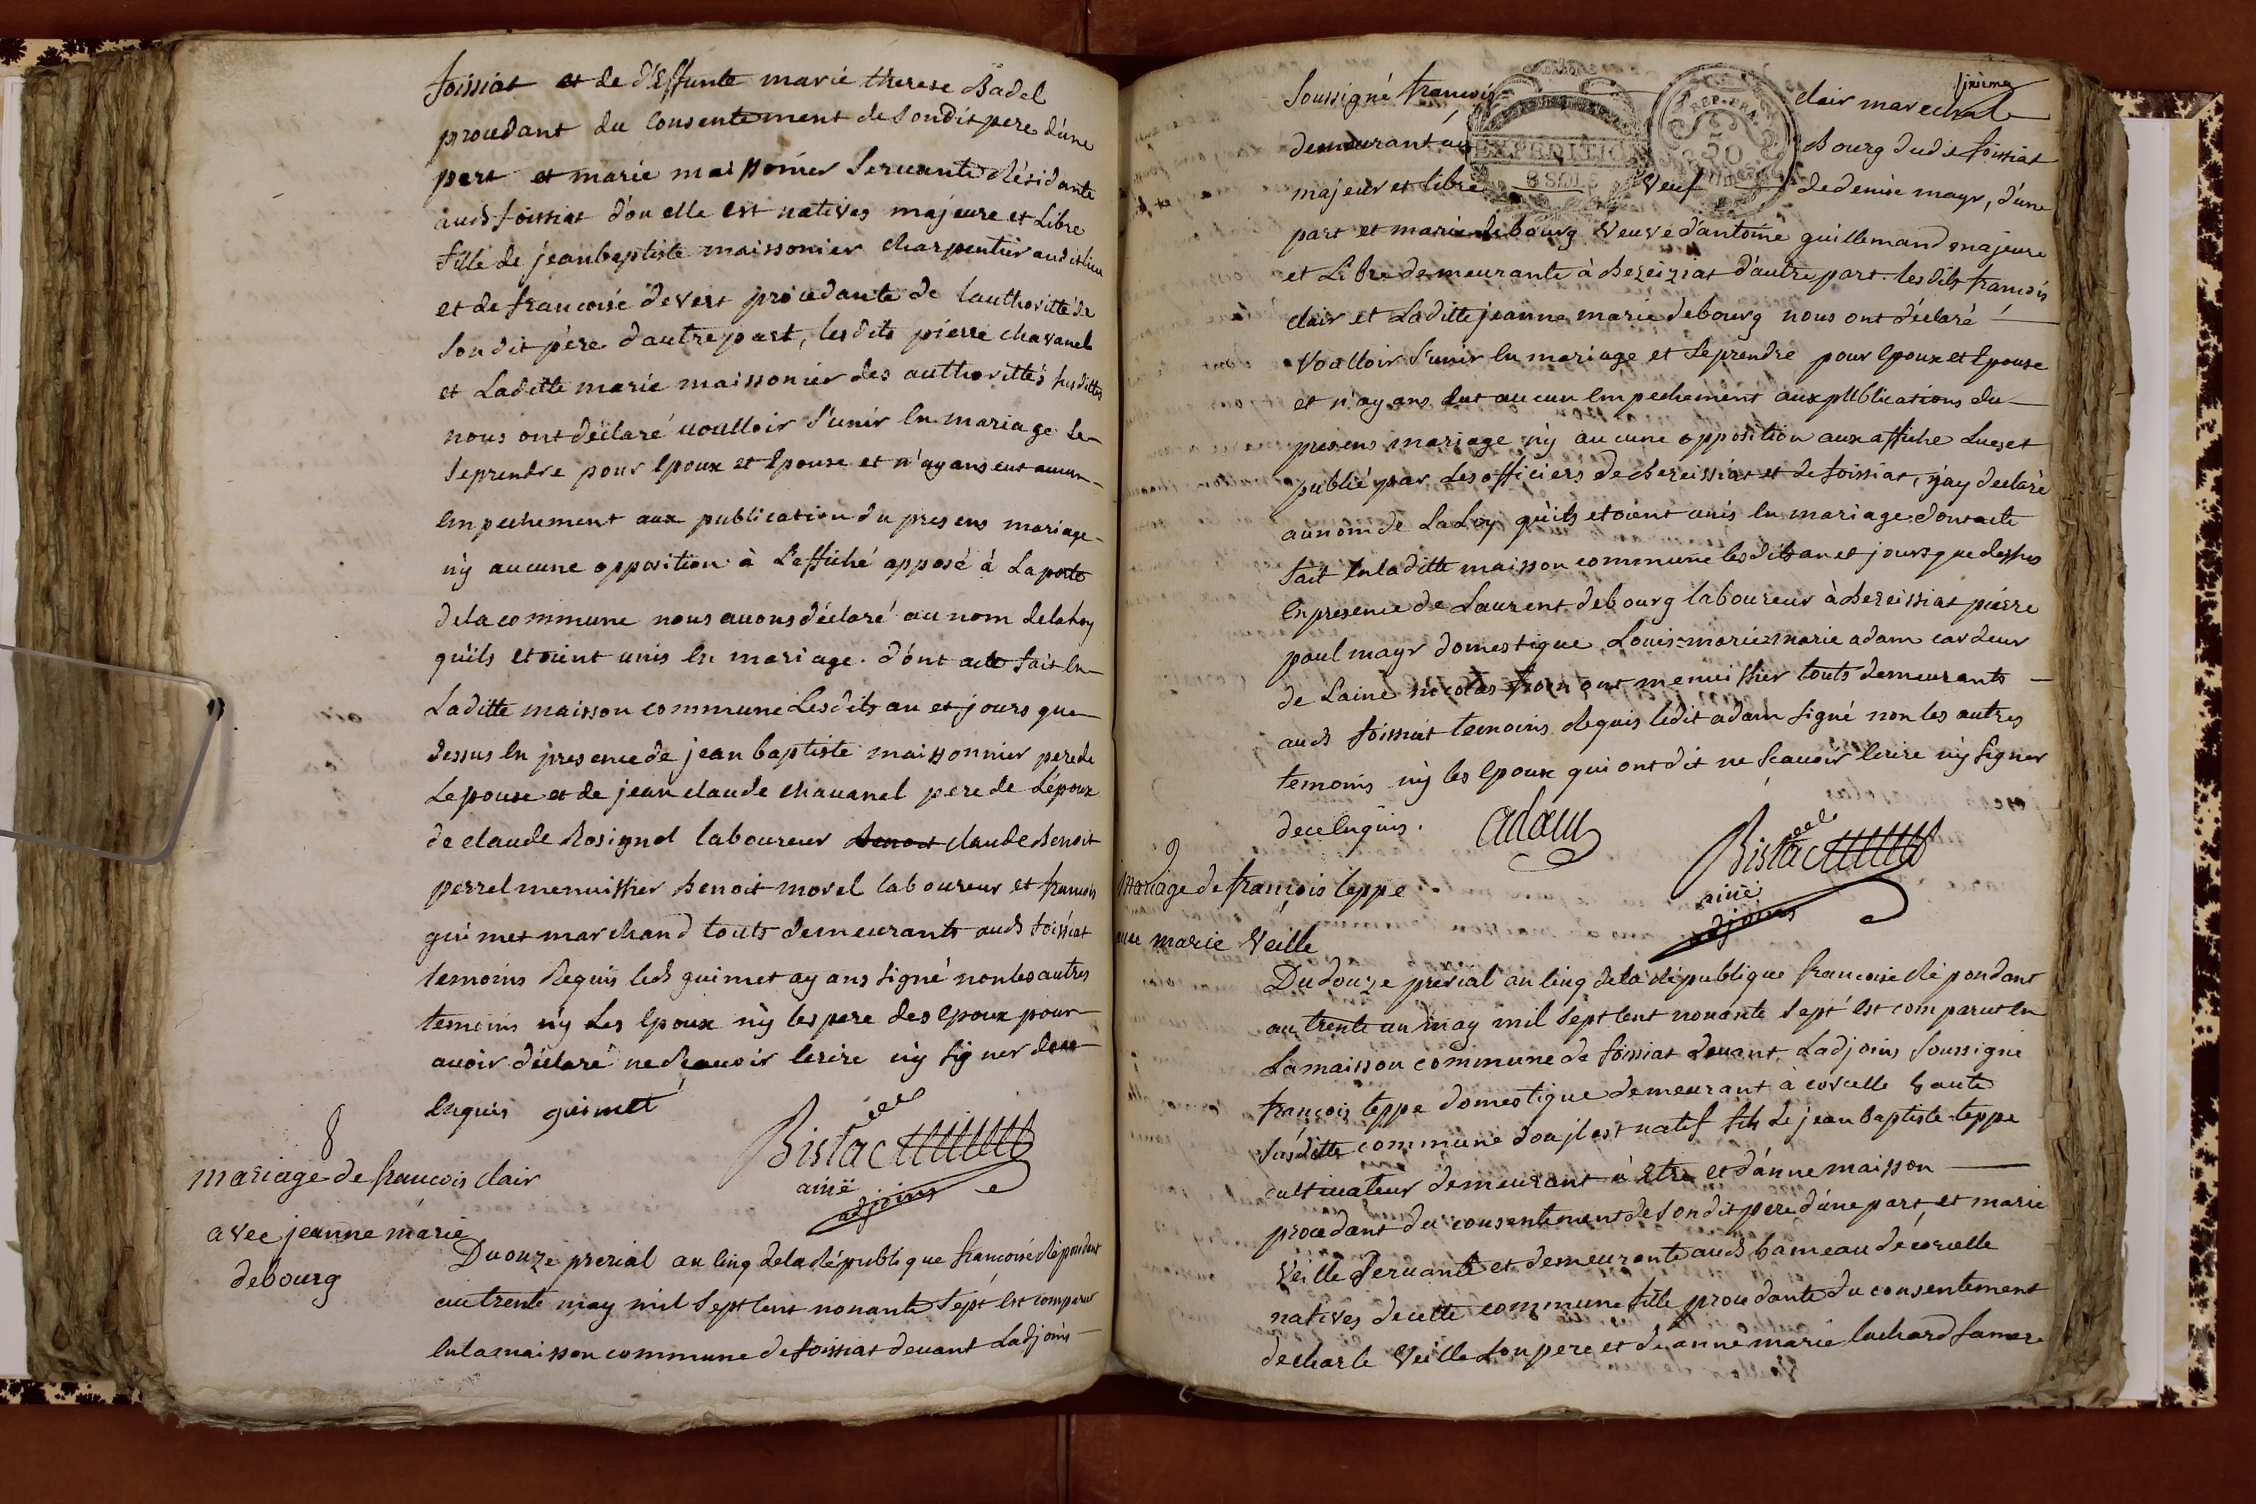 foissiat et de d'Effunte marie therese Badel
procedant du consentement de sondit pere d'une
part et marie maissonier servante Résidante
aud foissiat d'ou elle est natives majeure et Libre
fille de jean baptiste maissonier charpentier audit lieu
et de francoise devert procedante de lauthoritté de
son dit père d'autre part, les dits pierre chavanel
et Laditte marie maissonier des authorittés susdittes
nous ont déclaré voulloir s'unir en mariage se
se prendre pour Epoux et Epouse et n'ayans eut aucun
Empechement aux publication du presens mariage
n'y aucune opposition à L'affiché apposé à La porte
de la commune nous avons déclaré au nom de la Loy
qu'ils etoient unis en mariage. d'ont acte fait en
Laditte maisson commune Lesdits an et jours que
dessus en presence de jean baptiste maissonnier pere de
Lepouse et de jean claude chavanel pere de L'époux
de claude Rosignol laboureur benoit claude Benoit
perrel menuissier benoit morel laboureur et francois
guimet marchand touts demeurants aud foissiat
temoins dequis led guimet ayans signé non les autres
temoins n'y Les Epoux n'y les pere des epoux pour
avoir déclaré ne sçavoir Ecrire n'y signer de ce
Enquis guimet
Bistac
ainé
adjoins
8
mariage de francois clair
avec jeanne marie
debourg
Du onze prerial an cinq de la République francoise Répondant
au trente may mil sept cent nonante sept est comparu
en la maisson commune de foissiat devant Ladjoins
sixieme
Soussigné francois clair marechal
demeurant au Bourg dudit foissiat
EXPEDITION
8 SOLS
REP. FRA.
50
majeur et libre veuf de denise mayr, d'une
part et marie debourg veuve d'antoine guillemand majeure
et Libre demeurante à bezeiziat d'autre part. les dits francois
clair et Laditte jeanne marie debourg nous ont déclaré
voulloir s'unir en mariage et se prendre pour Epoux et Epouse
et n'ayans eut aucun Empechement aux publications du
presens mariage n'y aucune opposition aux affiche Lues et
publié par Les officiers de bereissiat et de foissiat, j'ay declaré
au nom de La Loy qu'ils etoient unis en mariage dont acte
fait en laditte maisson commune les dits an et jours que dessus
En presence de Laurent debourg laboureur à bereissiat pierre
paul mayr domestique Louis marie marie adam cardeur
de Laine nicolas menuissier touts demeurants
aud foissiat temoins dequis ledit adam signé non les autres
temoins n'y les Epoux qui ont dit ne scavoir Ecrire n'y signer
de ce Enquis.
adam
Bistac
ainé
adjoins
9
Mariage de françois teppe
avec marie Veille
Du douze prerial an cinq de la République francoise Répondant
au trente un may mil sept cent nonante sept est comparut en
La maisson commune de foissiat devant Ladjoins soussigné
françois teppe domestique demeurant à corcelle haute
susditte commune d'ou jl est natif fils de jean baptiste teppe
cultivateur demeurant à Etre et d'anne maisson
procedant du consentement de son dit pere d'une part, et marie
Veille servante et demeurante aud hameau de corcelle
natives de cette commune fille procedante du consentement
de charle Veille son pere et de anne marie luchard sa mere